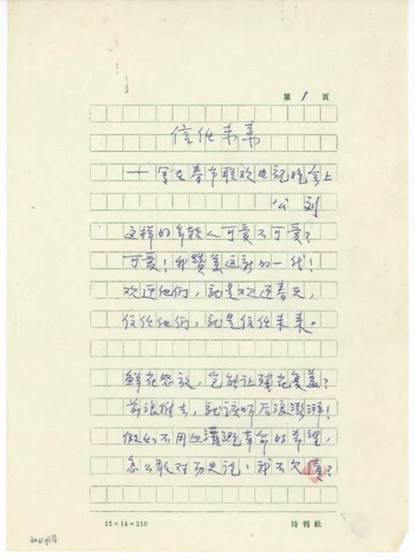 第 1 页
信任未来
——写在春节联欢电视晚会上
公刘
这样的年轻人可爱不可爱?
可爱!我赞美这新的一代!
欢迎他们,就是欢迎春天,
信任他们,就是信任未来。
鲜花怒放,岂能让残花覆盖?
前浪推去,就该听后浪澎湃!
假如不用血灌溉革命的希望,
怎么敢对历史说:我不欠债?
15×14=210
诗刊社